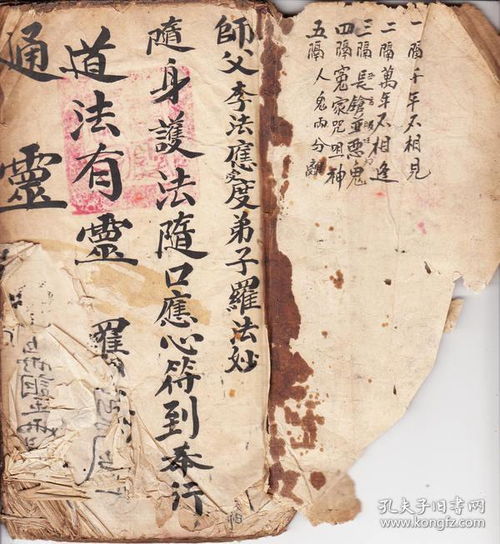 一隔千年不相見
二隔萬年不相逢
三隔長鎗並惡鬼
四隔寃家咒咀神
五隔人鬼兩分離
師父李法應度弟子羅法妙
隨身護法隨口應心符到奉行
道法有靈
羅
通靈
孔夫子旧书网
www.kongfz.com